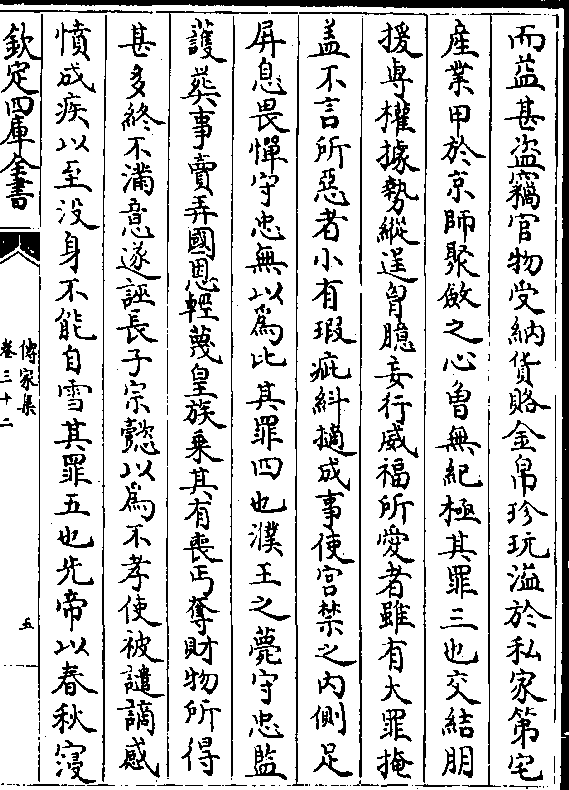 而益甚盗竊官物受納貨賂金帛珍玩溢於私家第宅
産業甲於京師聚斂之心曽無紀極其罪三也交結朋
援専權據勢縱逞胷臆妄行威福所愛者雖有大罪掩
盖不言所惡者小有瑕疵糾擿成事使宫禁之内側足
屏息畏憚守忠無以為比其罪四也濮王之薨守忠監
護葬事賣弄國恩輕蔑皇族乗其有喪丐奪財物所得
甚多終不滿意遂誣長子宗懿以為不孝使被譴謫感
憤成疾以至没身不能自雪其罪五也先帝以春秋寖
欽定四庫全書
傳家集
卷三十二
五